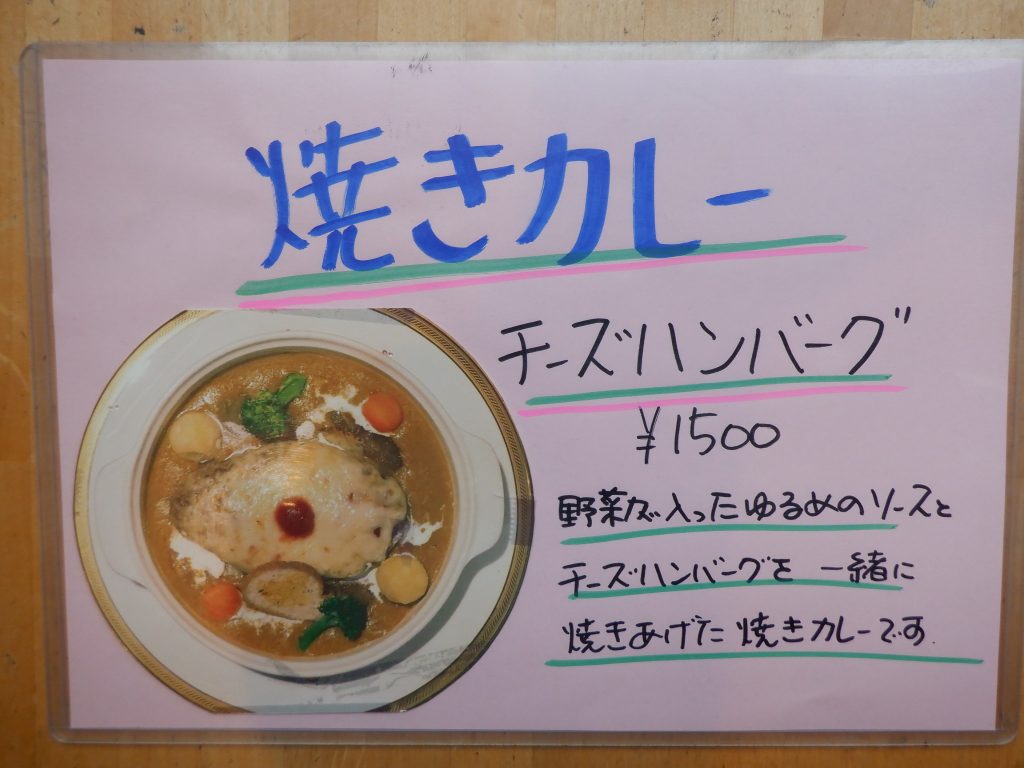 焼きカレー
チーズハンバーグ
¥1500
野菜が入ったゆるめのソースと
チーズハンバーグを 一緒に
焼きあげた 焼きカレーです.